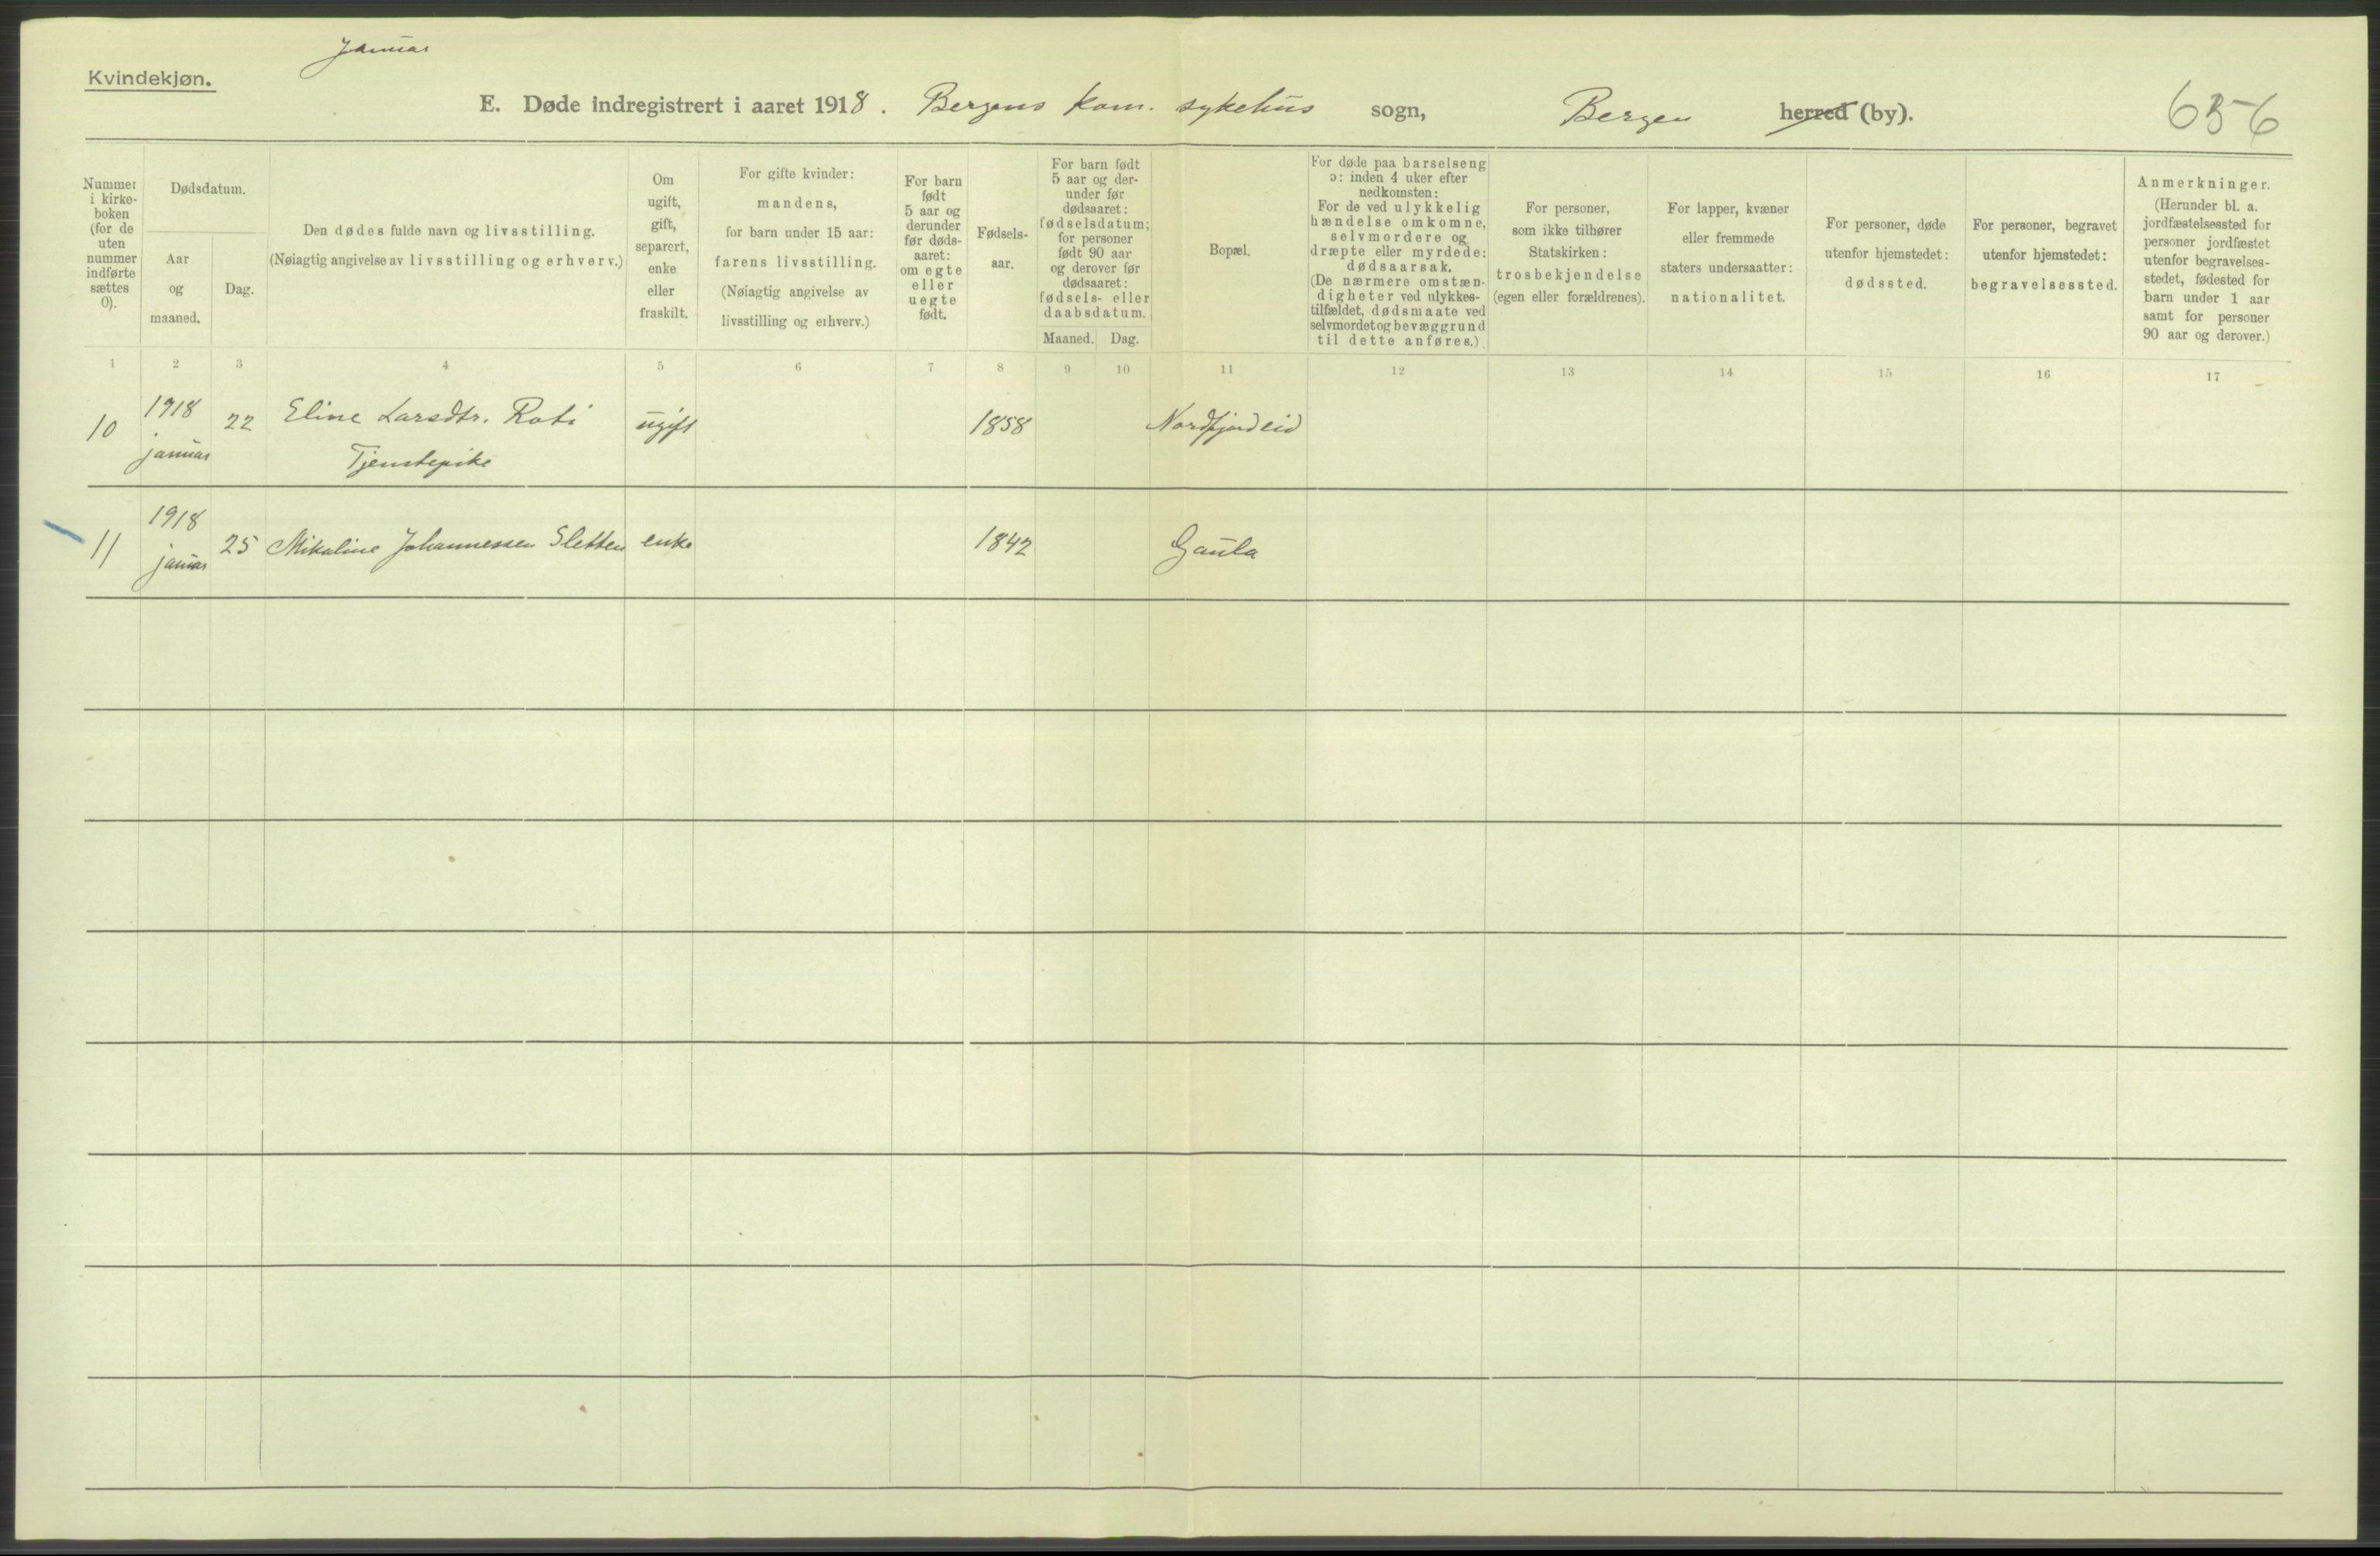 Januar
Kvindekjøn.
E. Døde indregistrert i aaret 1918. Bergens kom. sykehus sogn, Bergen herred (by).
656
Nummer
i kirke-
boken
(for de
uten
nummer
indførte
sættes
0).
Dødsdatum.
Aar
og
maaned.
Dag.
Den dødes fulde navn og livsstilling.
(Nøiagtig angivelse av livsstilling og erhverv.)
Om
ugift,
gift,
separert,
enke
eller
fraskilt.
For gifte kvinder:
mandens,
for barn under 15 aar:
farens livsstilling.
(Nøiagtig angivelse av
livsstilling og erhverv.)
For barn
født
5 aar og
derunder
før døds-
aaret:
om egte
eller
uegte
født.
Fødsels-
aar.
For barn født
5 aar og der-
under før
dødsaaret:
fødselsdatum;
for personer
født 90 aar
og derover før
dødsaaret:
fødsels- eller
daabsdatum.
Maaned. Dag.
Bopæl.
For døde paa barselseng
ɔ: inden 4 uker efter
nedkomsten:
For de ved ulykkelig
hændelse omkomne,
selvmordere og
dræpte eller myrdede:
dødsaarsak.
(De nærmere omstæn-
digheter ved ulykkes-
tilfældet, dødsmaate ved
selvmordet og bevæggrund
til dette anføres.)
For personer,
som ikke tilhører
Statskirken:
trosbekjendelse
(egen eller forældrenes).
For lapper, kvæner
eller fremmede
staters undersaatter:
nationalitet.
For personer, døde
utenfor hjemstedet:
dødssted.
For personer, begravet
utenfor hjemstedet:
begravelsessted.
Anmerkninger.
(Herunder bl. a.
jordfæstelsessted for
personer jordfæstet
utenfor begravelses-
stedet, fødested for
barn under 1 aar
samt for personer
90 aar og derover.)
1 2 3 4 5 6 7 8 9 10 11 12 13 14 15 16 17
10 1918 januar 22 Eline Larsdtr. Roti ugift 1858 Nordfjordeid
Tjenstepike
11 1918 januar 25 Mikaline Johannessen Sletten enke 1842 Gaula